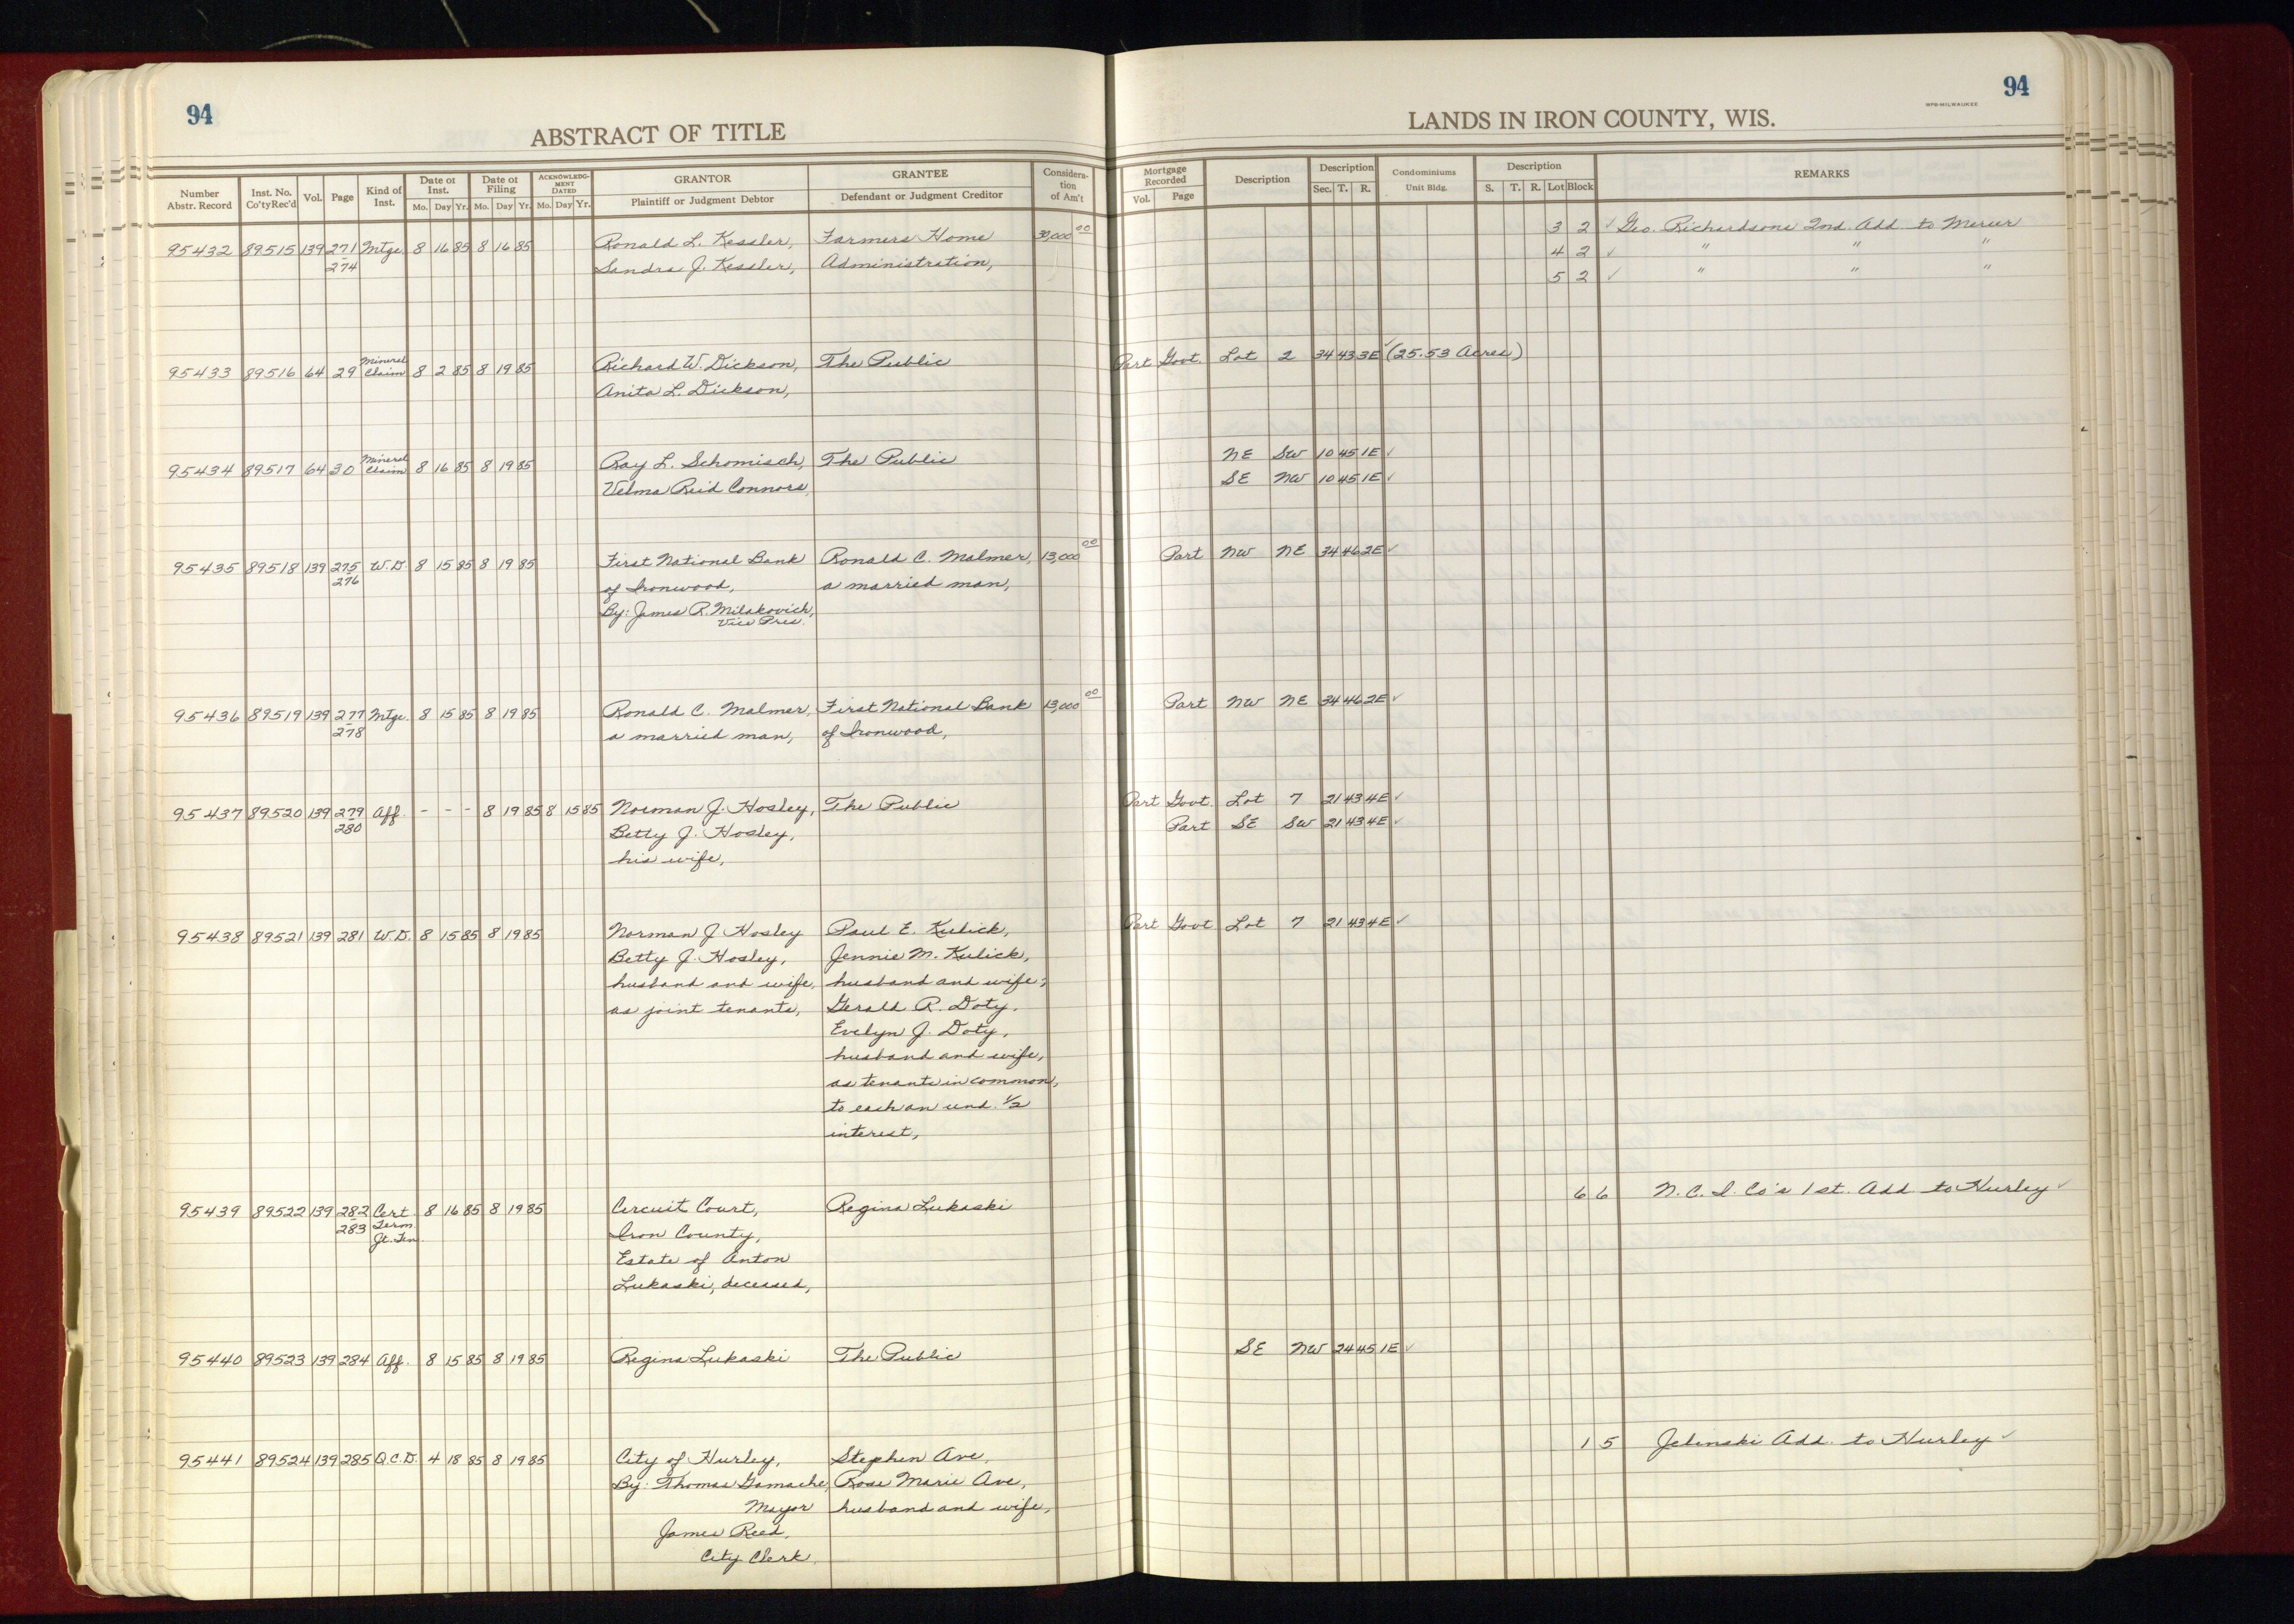 94
ABSTRACT OF TITLE
Number Abstr. Record Inst. No. Co'ty Rec'd Vol. Page Kind of Inst. Date of Inst. Mo. Day Yr. Date of Filing Mo. Day Yr. ACKNOWLEDG-MENT DATED Mo. Day Yr. GRANTOR Plaintiff or Judgment Debtor GRANTEE Defendant or Judgment Creditor Considera-tion of Am't
95432 89515 139 271 Mtge. 8 16 85 8 16 85 Ronald L. Kessler, Farmers Home 30,000 00
274 Sandra J. Kessler, Administration,
95433 89516 64 29 Mineral Claim 8 2 85 8 19 85 Richard W. Dickson, The Public
Anita L. Dickson,
95434 89517 64 30 Mineral Claim 8 16 85 8 19 85 Ray L. Schomisch, The Public
Velma Reid Connors,
95435 89518 139 275 W.D. 8 15 85 8 19 85 First National Bank Ronald C. Malmer, 13,000 00
276 of Ironwood, a married man,
By: James R. Milakovich,
Vice Pres.
95436 89519 139 277 Mtge. 8 15 85 8 19 85 Ronald C. Malmer, First National Bank 13,000 00
278 a married man, of Ironwood,
95437 89520 139 279 Aff. - - - 8 19 85 8 15 85 Norman J. Hosley, The Public
280 Betty J. Hosley,
his wife,
95438 89521 139 281 W.D. 8 15 85 8 19 85 Norman J. Hosley Paul E. Kulick,
Betty J. Hosley, Jennie M. Kulick,
husband and wife, husband and wife;
as joint tenants, Gerald R. Doty,
Evelyn J. Doty,
husband and wife,
as tenants in common,
to each an und. 1/2
interest,
95439 89522 139 282 Cert. 8 16 85 8 19 85 Circuit Court, Regina Lukaski
283 Term. Iron County,
Jt. Ten. Estate of Anton
Lukaski, deceased,
95440 89523 139 284 Aff. 8 15 85 8 19 85 Regina Lukaski The Public
95441 89524 139 285 Q.C.D. 4 18 85 8 19 85 City of Hurley, Stephen Ave,
By: Thomas Gamache, Rose Marie Ave,
Mayor husband and wife,
James Reed,
City Clerk
94
WPB-MILWAUKEE
LANDS IN IRON COUNTY, WIS.
Mortgage Recorded Vol. Page Description Description Sec. T. R. Condominiums Unit Bldg. Description S. T. R. Lot Block REMARKS
3 2 ✓ Geo. Richardsons 2nd. Add. to Mercer
4 2 ✓ " " "
5 2 ✓ " " "
Part Govt. Lot 2 34 43 3E ✓ (25.53 Acres)
NE SW 10 45 1E ✓
SE NW 10 45 1E ✓
Part NW NE 34 46 2E ✓
Part NW NE 34 46 2E ✓
Part Govt. Lot 7 21 43 4E ✓
Part SE SW 21 43 4E ✓
Part Govt. Lot 7 21 43 4E ✓
6 6 N.C.I. Co's 1st. Add to Hurley ✓
SE NW 24 45 1E ✓
1 5 Jelinski Add. to Hurley ✓